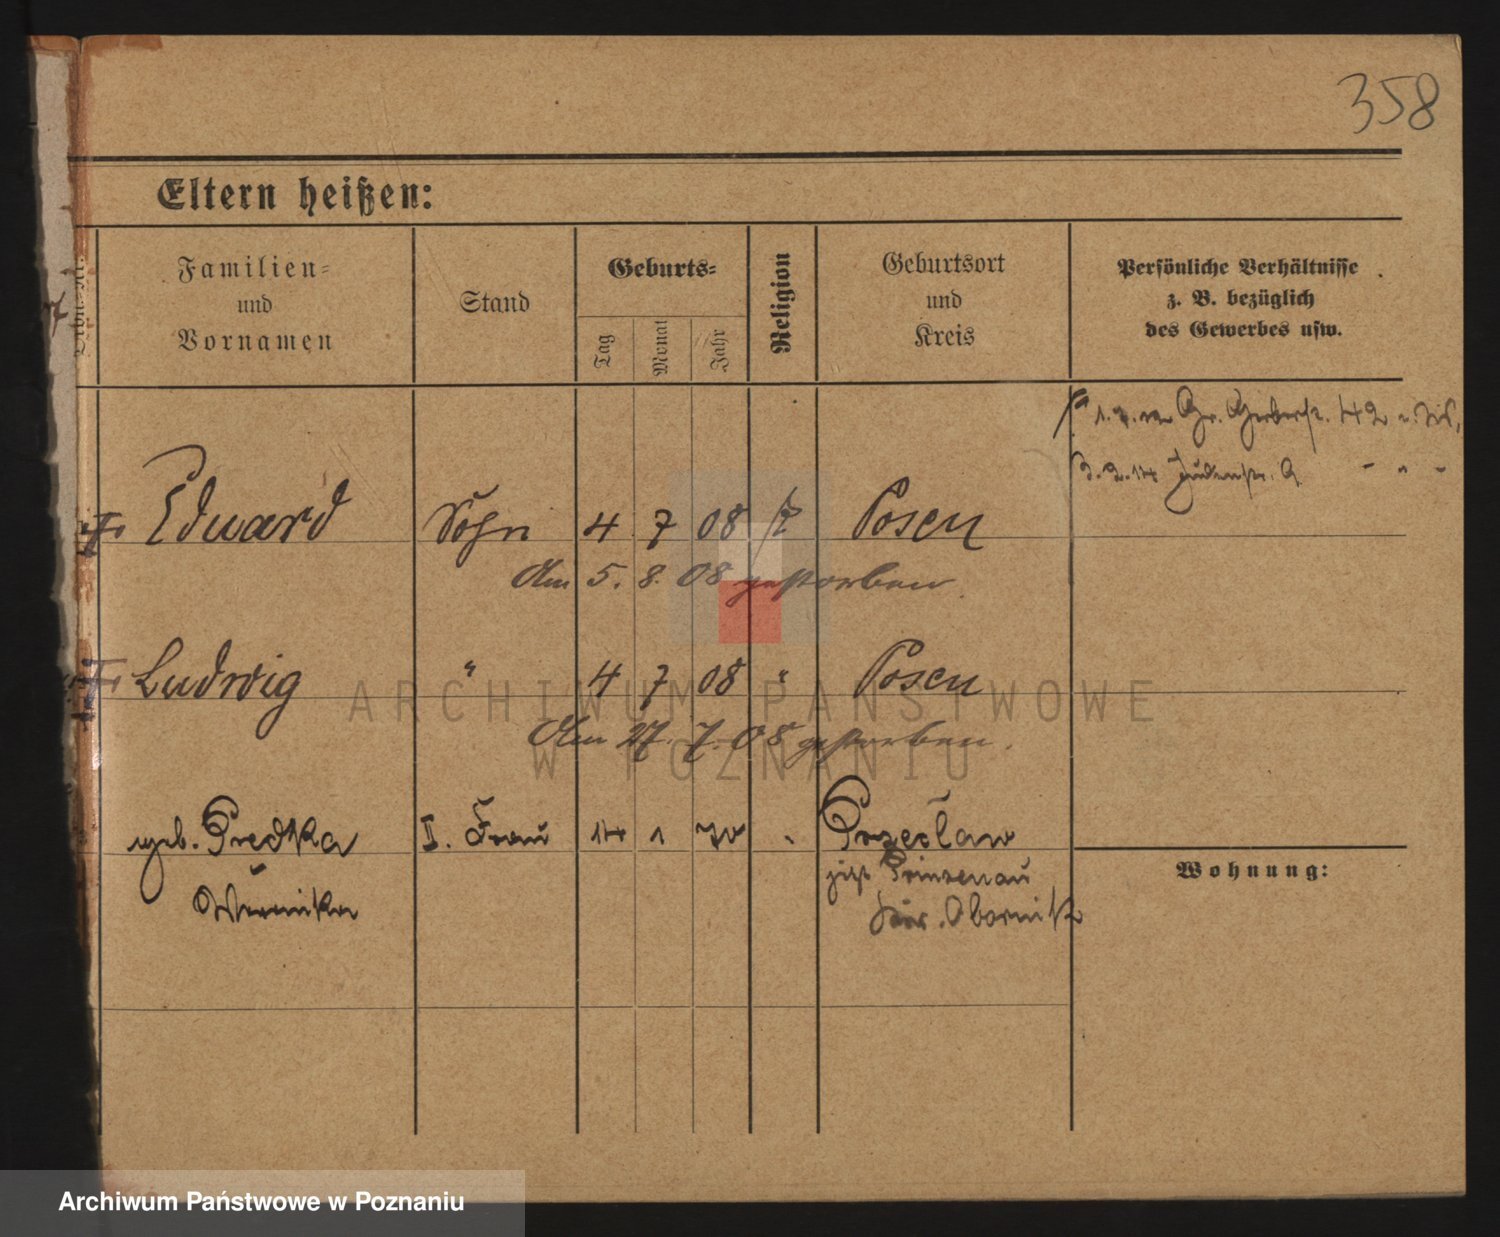 358
Eltern heißen:
Familien-
und
Vornamen
Stand
Geburts-
Tag
Monat
Jahr
Religion
Geburtsort
und
Kreis
Persönliche Verhältnisse
z. B. bezüglich
des Gewerbes usw.
Gr. Gerberstr. 42
3. 2. 14 Judenstr. 9 " " "
Eduard Sohn 4 7 08 Posen
Am 5. 8. 08 gestorben.
Ludwig " 4 7 08 " Posen
Am 27. 7. 08 gestorben.
geb. Predka II. Frau 14 1 70 " Przeclaw
jetzt Prinzenau
Veronika
Kr. Obornik
Wohnung:
ARCHIWUM PAŃSTWOWE
W POZNANIU
Archiwum Państwowe w Poznaniu